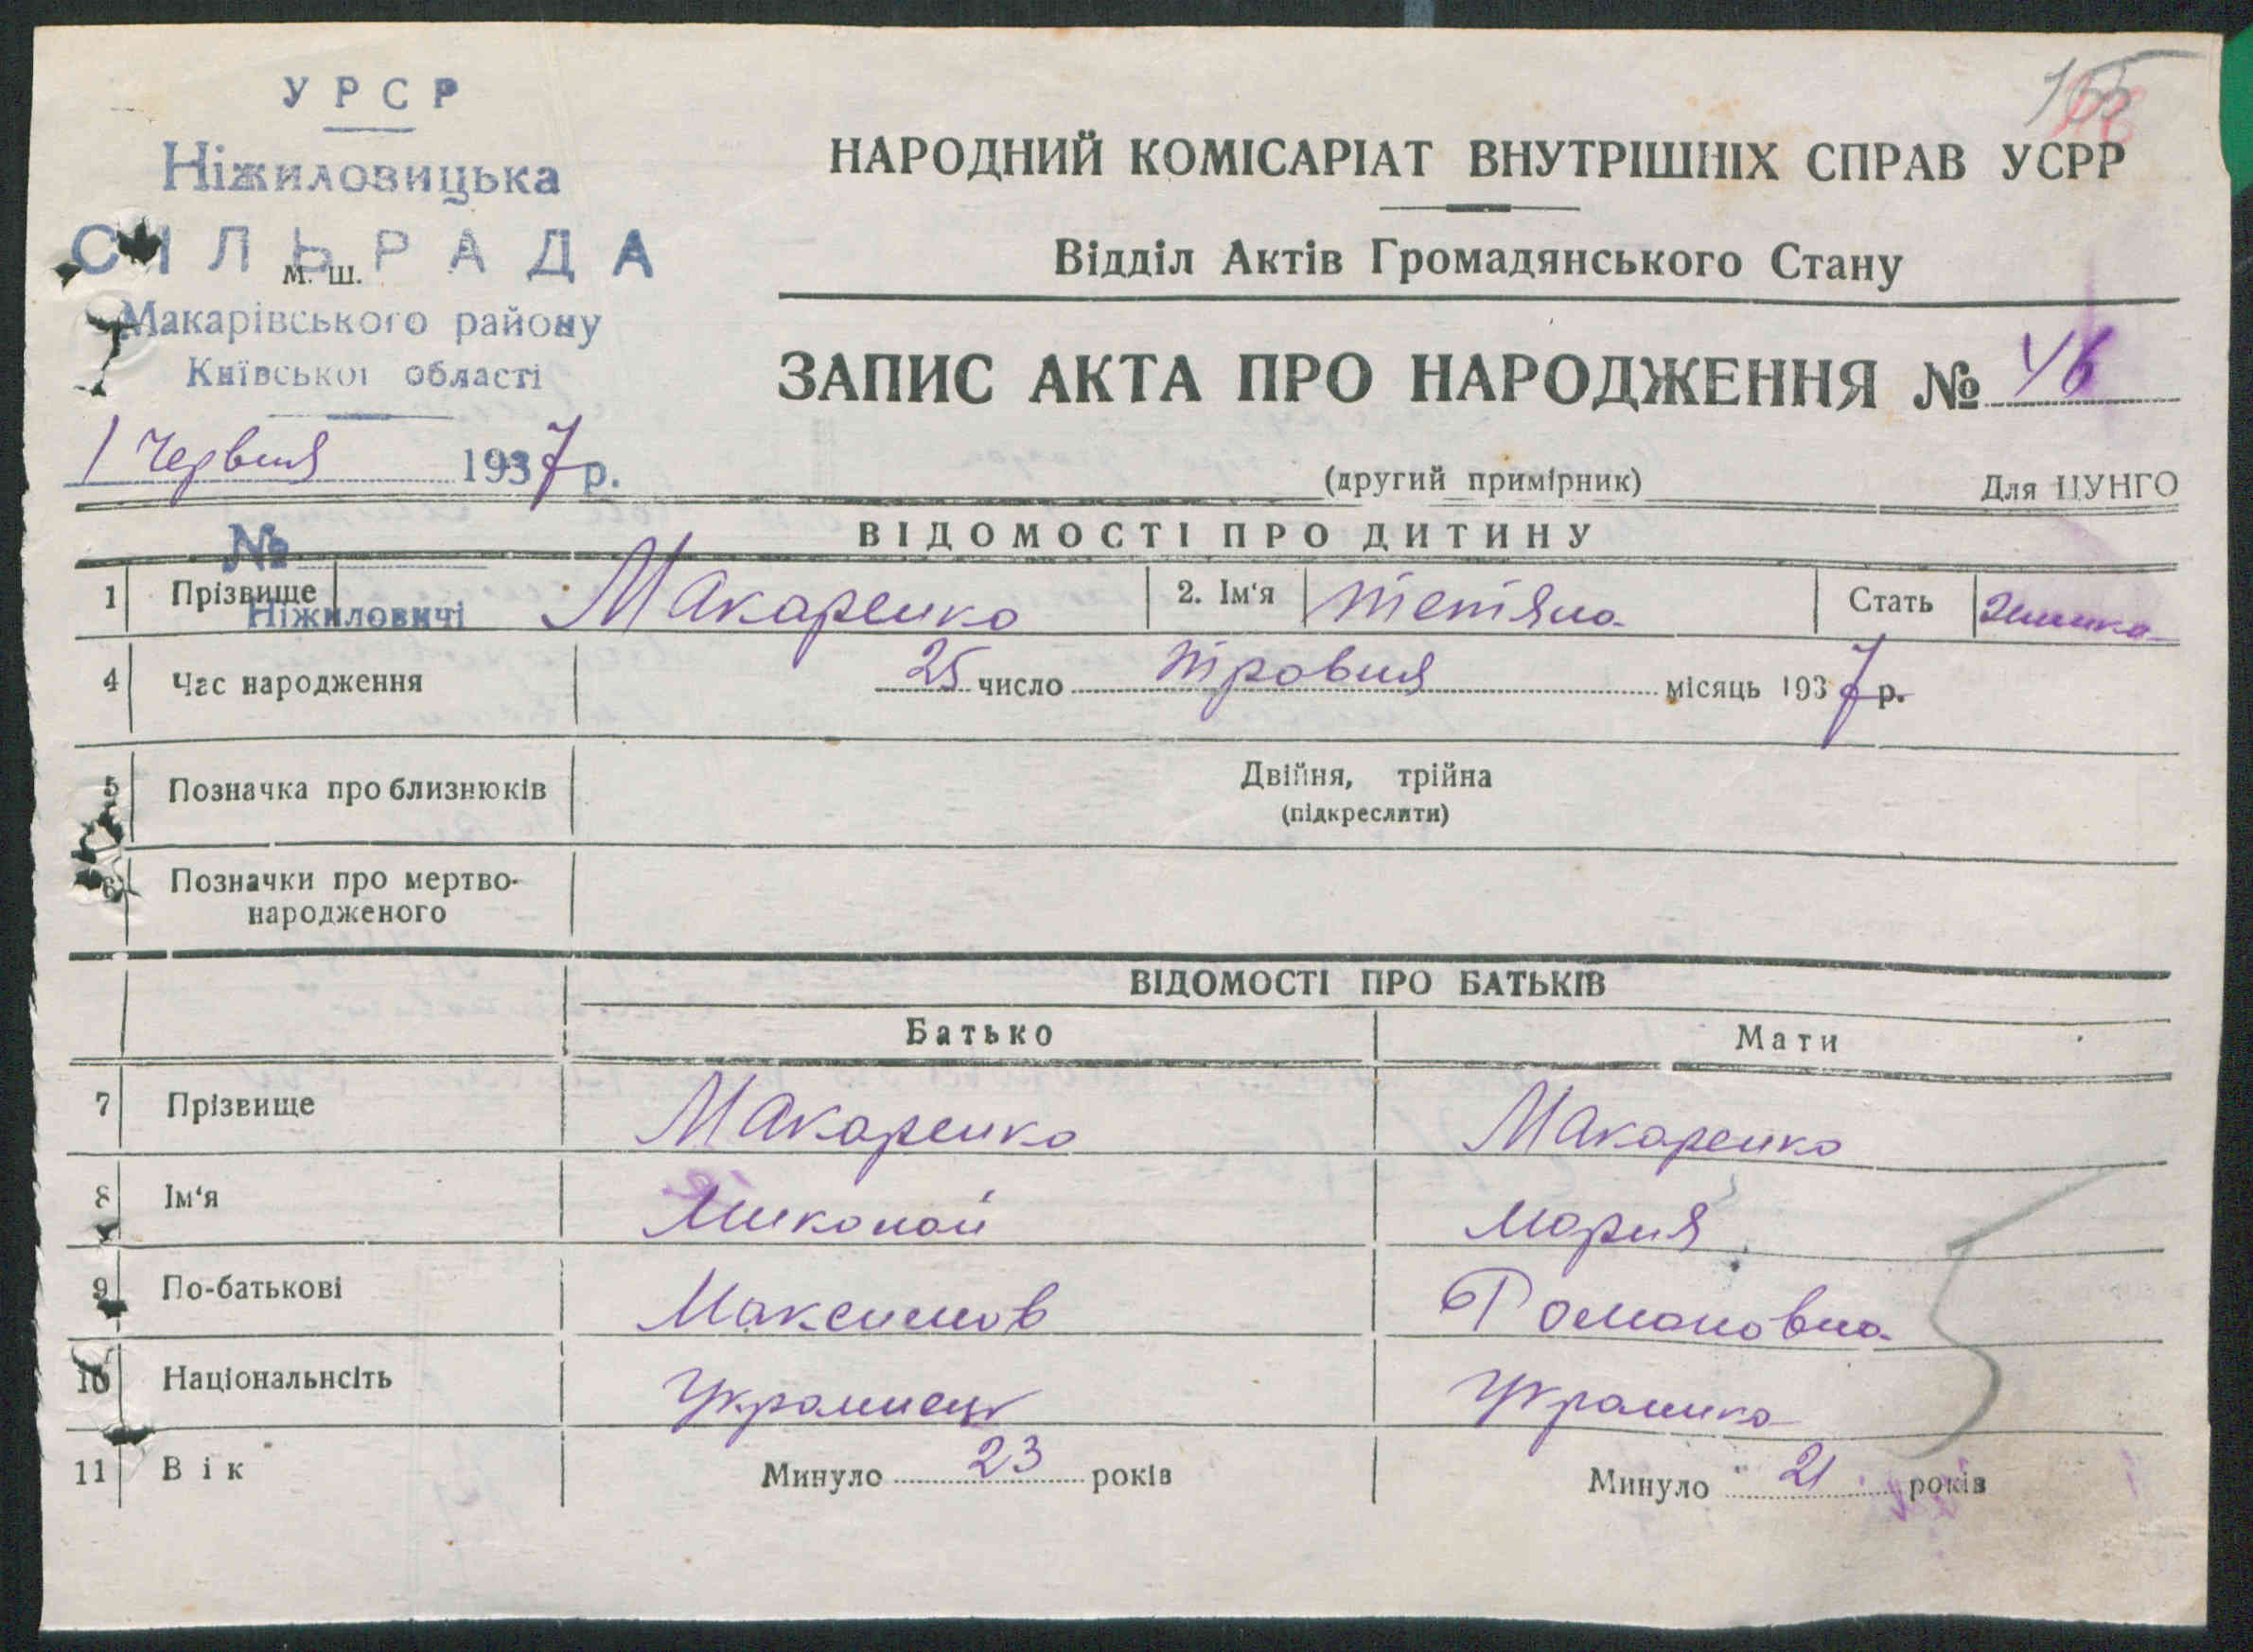 УРСР
Ніжиловицька
СІЛЬРАДА
м. ш.
Макарівського району
Київської області
1 Червня 1937 р.
№
Ніжиловичі
155
НАРОДНИЙ КОМІСАРІАТ ВНУТРІШНІХ СПРАВ УСРР
Відділ Актів Громадянського Стану
ЗАПИС АКТА ПРО НАРОДЖЕННЯ № 46
(другий примірник) Для ЦУНГО
ВІДОМОСТІ ПРО ДИТИНУ
1 Прізвище Макаренко 2. Ім‘я Тетяна Стать Жинка
4 Час народження 25 число Травня місяць 1937 р.
5 Позначка про близнюків Двійня, трійна
(підкреслити)
6 Позначки про мертво-
народженого
ВІДОМОСТІ ПРО БАТЬКІВ
Батько Мати
7 Прізвище Макаренко Макаренко
8 Ім‘я Миколай Мария
9 По-батькові Максимов Романовна
10 Національнсіть Украинець Украинка
11 Вік Минуло 23 років Минуло 21 років